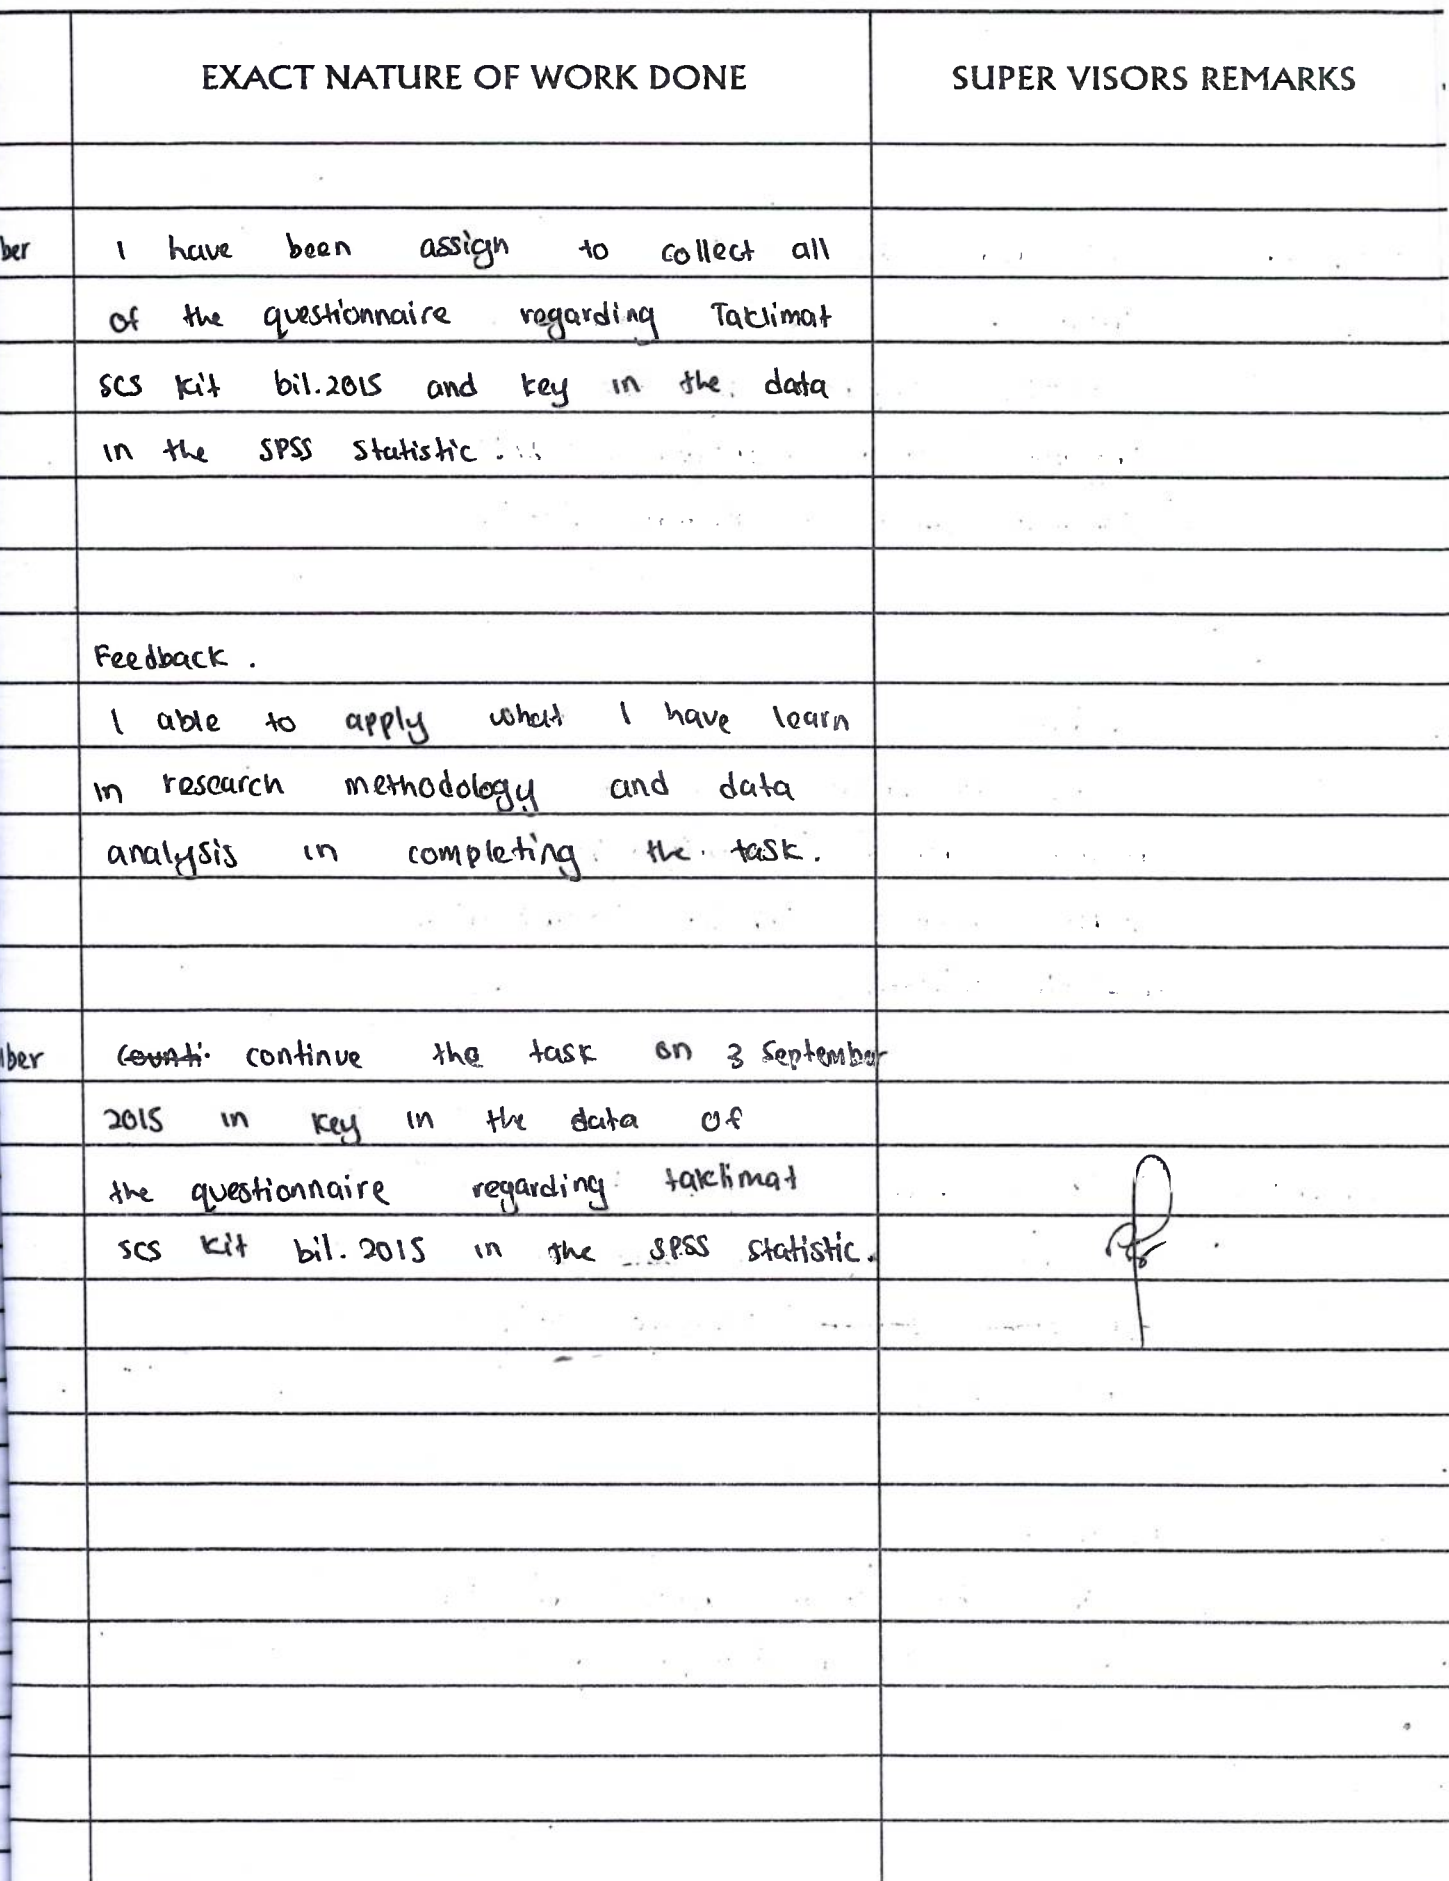 EXACT NATURE OF WORK DONE SUPER VISORS REMARKS
ber I have been assign to collect all
of the questionnaire regarding Taklimat
SCS Kit bil.2015 and key in the data
in the SPSS Statistic.
Feedback.
I able to apply what I have learn
in research methodology and data
analysis in completing the task.
ber continue the task on 3 September
2015 in key in the data of
the questionnaire regarding taklimat
SCS Kit bil. 2015 in the SPSS Statistic.